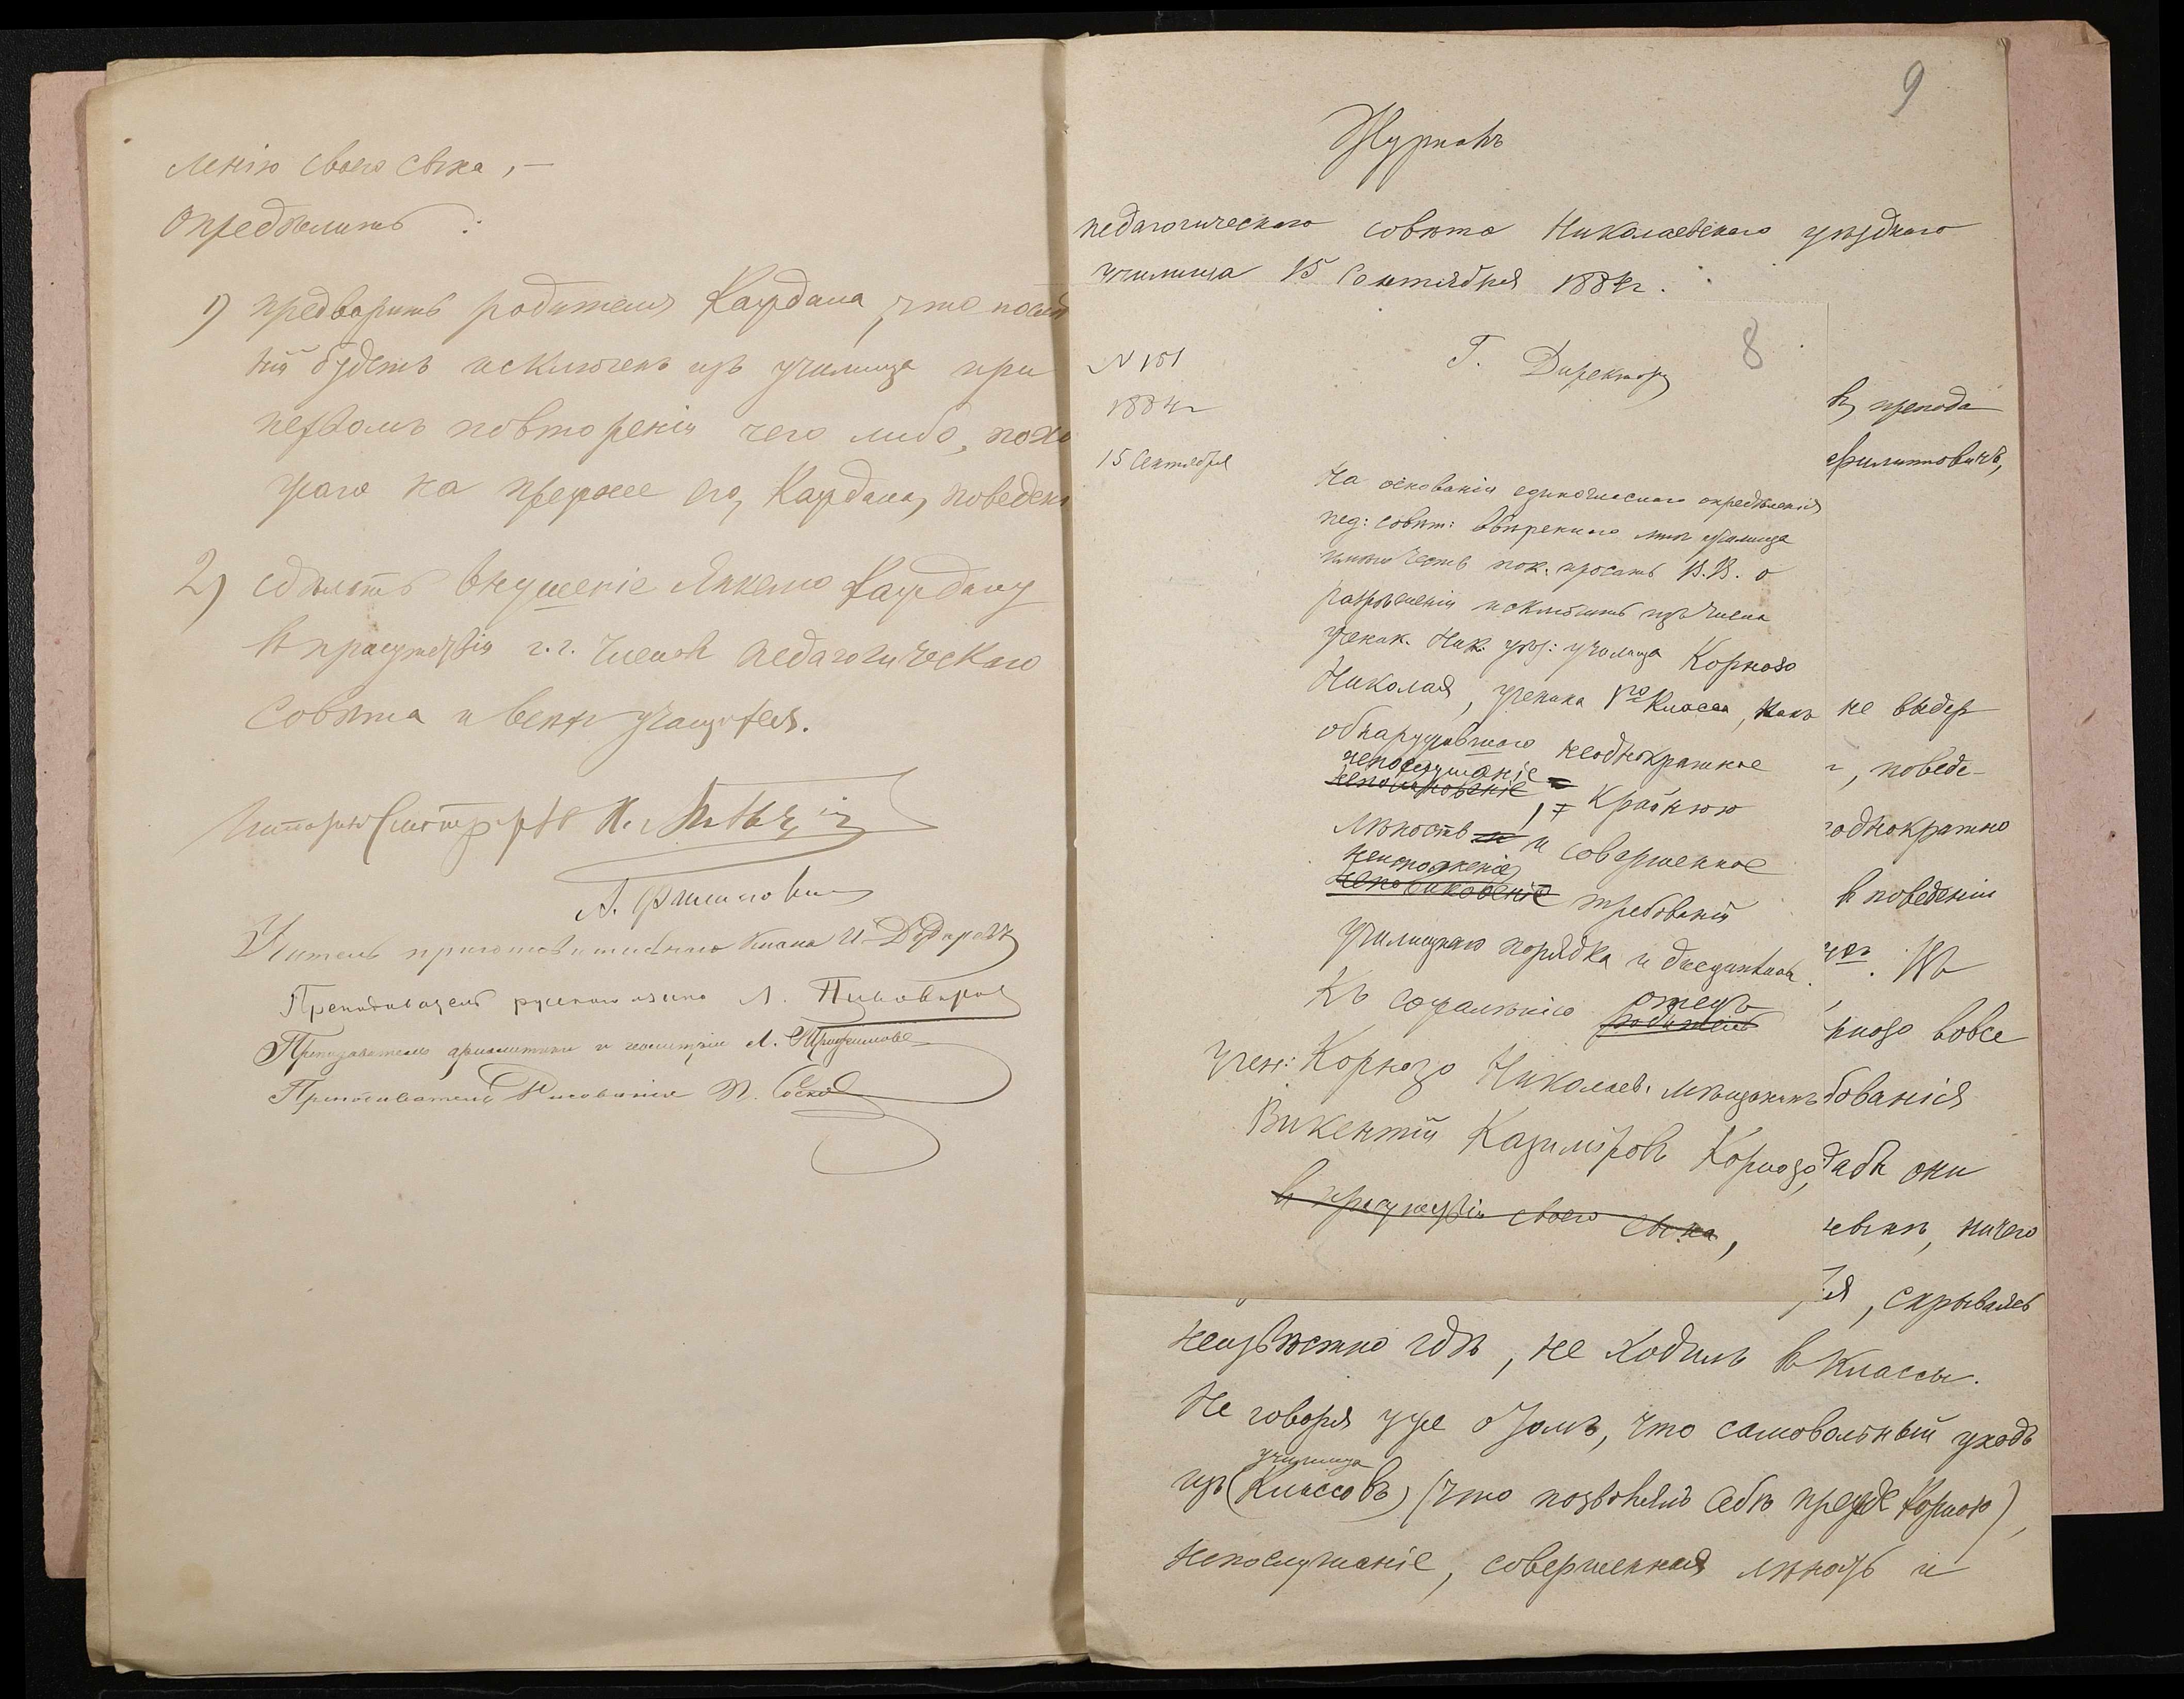 ленію своего сына, —
Опредѣлить :
1) предварить родителя Каждана, что послѣд
ній будетъ исключенъ изъ училища при
первомъ повтореніи чего либо, похо
жаго на прежнее его, Каждана, поведені
2) сдѣлать внушеніе Янкелю Каждану
въ присутствіи г.г. членовъ педагогическаго
совѣта и всѣхъ учащихся.
А. Филиповичъ
Учитель приготовительнаго класса И.
Преподаватель русскаго языка Л. Пивоваров
Преподаватель ариѳметики и геометріи А.
Преподаватель Рисованія П.
9
Журналъ
педагогическаго совѣта Николаевскаго уѣзднаго
училища 15 Сентября 1884 г.
8
N 151
1884 г
15 Сентября
Г. Директору
На основаніи единогласнаго опредѣленія
пед: совѣт: ввѣреннаго мнѣ училища
имѣю честь пок. просить В.В. о
разрѣшеніи исключить изъ числа
ученик. Ник. уѣз: училища Корнозо
Николая, ученика 1го класса, какъ
обнаружившаго неоднократное
непослушаніе
, крайнюю
лѣность и совершенное
неисполненіе
требованій
училищнаго порядка и дисциплины.
Къ сожалѣнію отецъ
родитель
учен: Корнозо Николаев. мѣщанинъ
Викентій Казиміровъ Корнозо,
въ присутствіи своего сына,
въ препода
Филиповичъ,
не выдер
, поведе-
однократно
въ поведеніи
. Въ
рнозо вовсе
бованія
они
, ничего
, скрываясь
неизвѣстно гдѣ, не ходилъ въ классы.
Не говоря уже о томъ, что самовольный уходъ
училища
изъ (классовъ) (что позволялъ себѣ прежде Корнозо),
непослушаніе, совершенная лѣность и